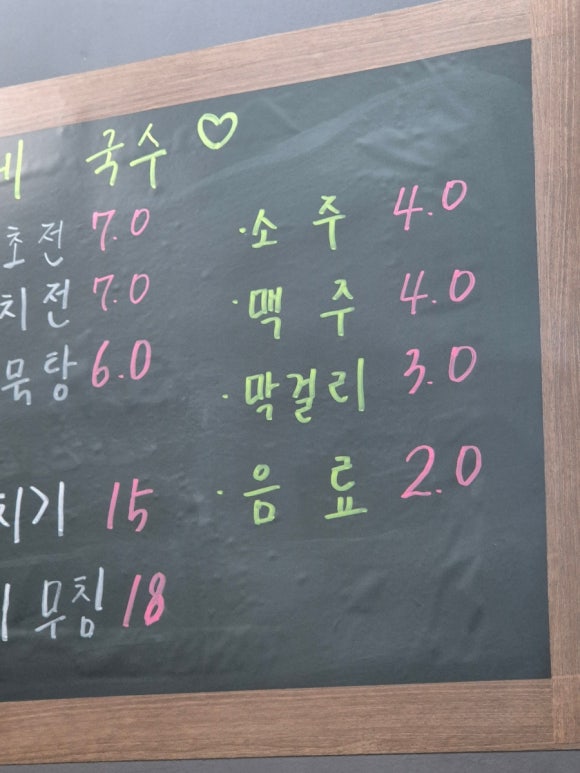 국수 ♡
초전 7.0
치전 7.0
묵탕 6.0
치기 15
무침 18
·소 주 4.0
·맥 주 4.0
·막걸리 3.0
·음 료 2.0